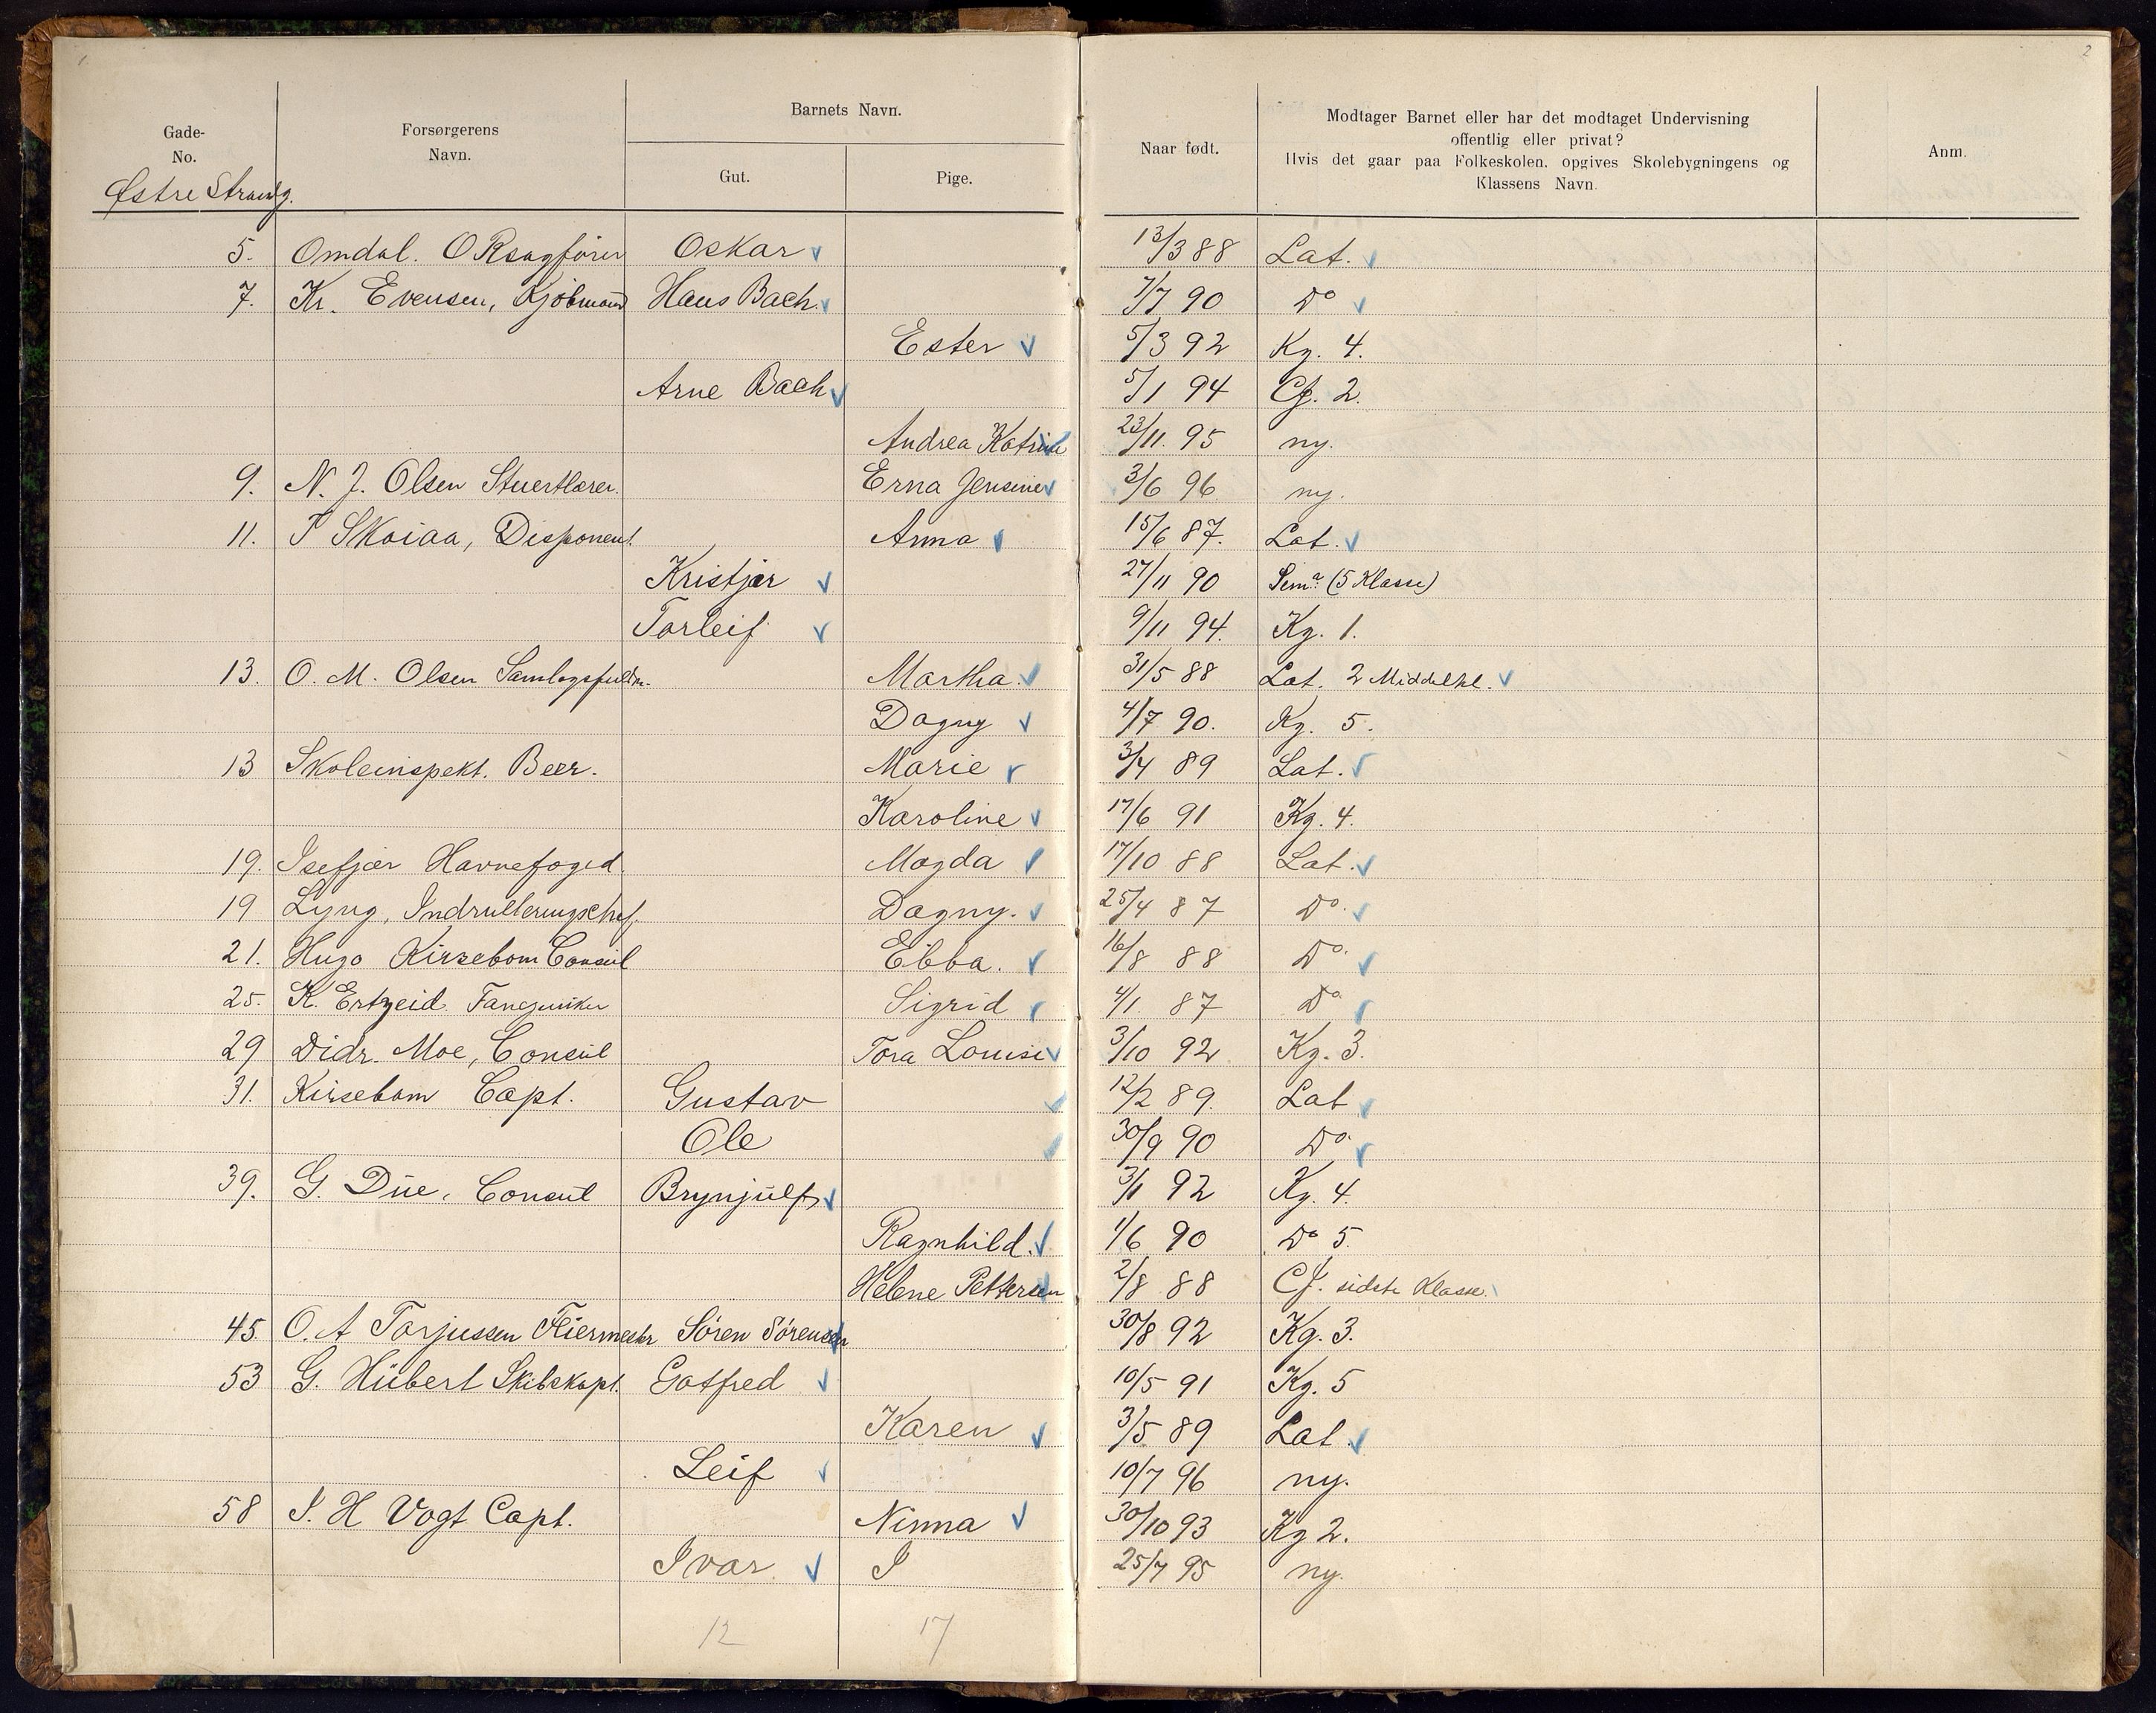 1
2
Barnets Navn.
Gade-
No.
Forsørgerens
Navn.
Gut.
Pige.
Naar født.
Modtager Barnet eller har det modtaget Undervisning
offentlig eller privat?
Hvis det gaar paa Folkeskolen, opgives Skolebygningens og
Klassens Navn.
Anm.
Østre Strandg.
5. Omdal. ORsagfører Oskar 13/3 88 Lat.
7. Kr. Evensen, Kjøbmand Hans Bach 7/7 90 Do
Ester 5/3 92 Kg. 4.
Arne Bach 5/1 94 Cf. 2.
Andrea Katrine 23/11. 95 ny.
9. N. J. Olsen Stuertlærer. Erna Jensine 3/6 96 ny.
11. T Skoiaa, Disponent. Anna 15/6 87. Lat.
Kristjar 27/11 90 Sema. (5 Klasse)
Torleif 9/11 94. Kg. 1.
13. O. M. Olsen Samlagsfuldm. Martha 31/5 88 Lat. 2 Middelkl.
Dagny 4/7 90. Kg. 5.
13 Skoleinspekt. Beer. Marie 3/4 89 Lat.
Karoline 17/6 91 Kg. 4.
19. Isefjær Havnefoged. Magda 17/10 88 Lat.
19 Lyng, Indrulleringschef. Dagny. 25/4 87 Do.
21. Hugo Kirsebom Consül Ebba. 16/8 88 Do.
25. K. Ertzeid. Sigrid 4/1. 87 Do.
29 Didr. Moe, Consül Tora Louise 3/10 92 Kg. 3.
31. Kirsebom Capt. Gustav 12/2 89. Lat
Ole 30/9 90 Do.
39. G. Düe, Consül Brynjülf 3/1 92 Kg. 4.
Ragnhild. 1/6 90 Do 5.
Helene Pettersen 2/8 88 Cf. sidste Klasse.
45. O. A Torjussen Feiermester Sören Sörensen 30/8 92 Kg. 3.
53 G. Hübert Skibskapt. Gotfred 10/5 91 Kg. 5
Karen 3/5 89 Lat
Leif 10/7 96 ny.
58 J. H Vogt Capt. Ninna 30/10 93 Kg 2.
Ivar. I 25/7 95 ny.
12 17